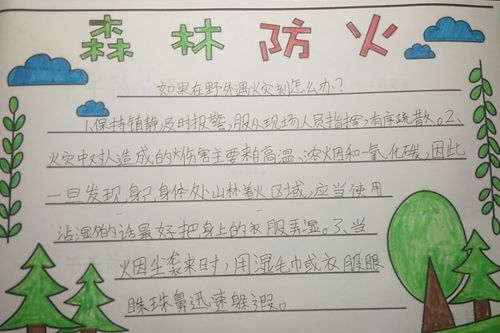 森林防火
如果在野外遇火灾到怎么办？
1.保持镇静及时报警,服从现场人员指挥,有序疏散。2、
火灾中对人造成的伤害主要来自高温、浓烟和一氧化碳,因此
一旦发现身身体处山林着火区域,应当使用
沾湿的话最好把身上的衣服弄湿。3、当
火因尘袭来时,用湿毛巾或衣服眼
眯珠鼻迅速躲。